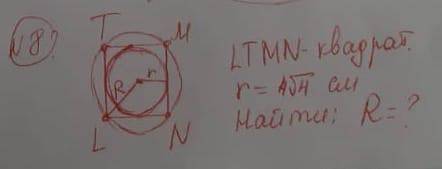 N8?
T
M
R
r
L
N
LTMN - квадрат.
r = 4√4 см
Найти: R = ?